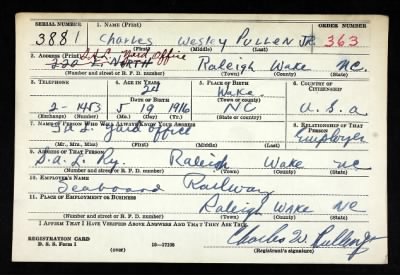 SERIAL NUMBER
1. NAME (Print)
ORDER NUMBER
3881
Charles Wesley PULLEN JR.
363
(First) (Middle) (Last)
2. ADDRESS (Print)
S.A.L. Yard Office
NORTH Raleigh Wake N.C.
(Number and street or R. F. D. number) (Town) (County) (State)
3. TELEPHONE
4. AGE IN YEARS
5. PLACE OF BIRTH
6. COUNTRY OF CITIZENSHIP
24
Wake
(Town or county)
DATE OF BIRTH
2-1453
5 19 1916
NC
U.S.a
(Exchange) (Number)
(Mo.) (Day) (Yr.)
(State or country)
7. NAME OF PERSON WHO WILL ALWAYS KNOW YOUR ADDRESS
8. RELATIONSHIP OF THAT PERSON
S a L yard office
Employer
(Mr., Mrs., Miss) (First) (Middle) (Last)
9. ADDRESS OF THAT PERSON
S.a.L Ry. Raleigh Wake NC
(Number and street or R. F. D. number) (Town) (County) (State)
10. EMPLOYER'S NAME
Seaboard Railway
11. PLACE OF EMPLOYMENT OR BUSINESS
Raleigh Wake NC
(Number and street or R. F. D. number) (Town) (County) (State)
I AFFIRM THAT I HAVE VERIFIED ABOVE ANSWERS AND THAT THEY ARE TRUE.
REGISTRATION CARD
D. S. S. Form 1
(over)
16-17105
Charles W Pullen Jr
(Registrant's signature)